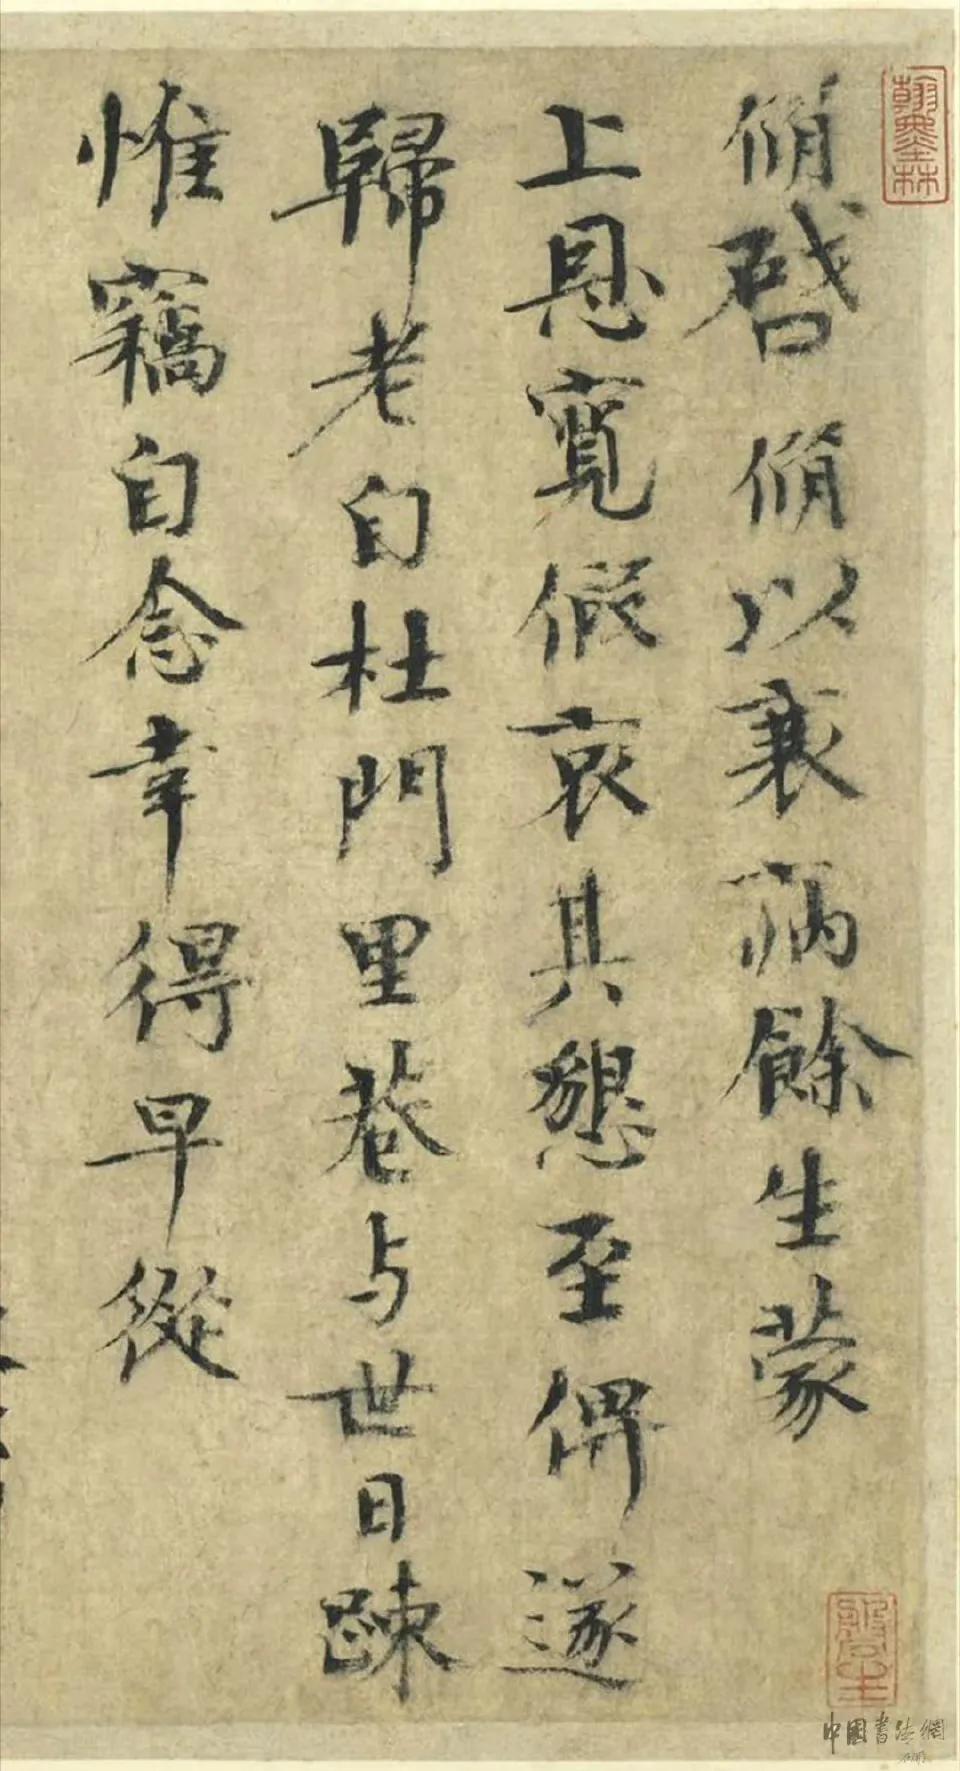 脩啓脩以衰病餘生蒙
上恩寬假哀其懇至俾遂
歸老自杜門里巷与世日踈
惟竊自念幸得早從
翰墨林
中國書法網